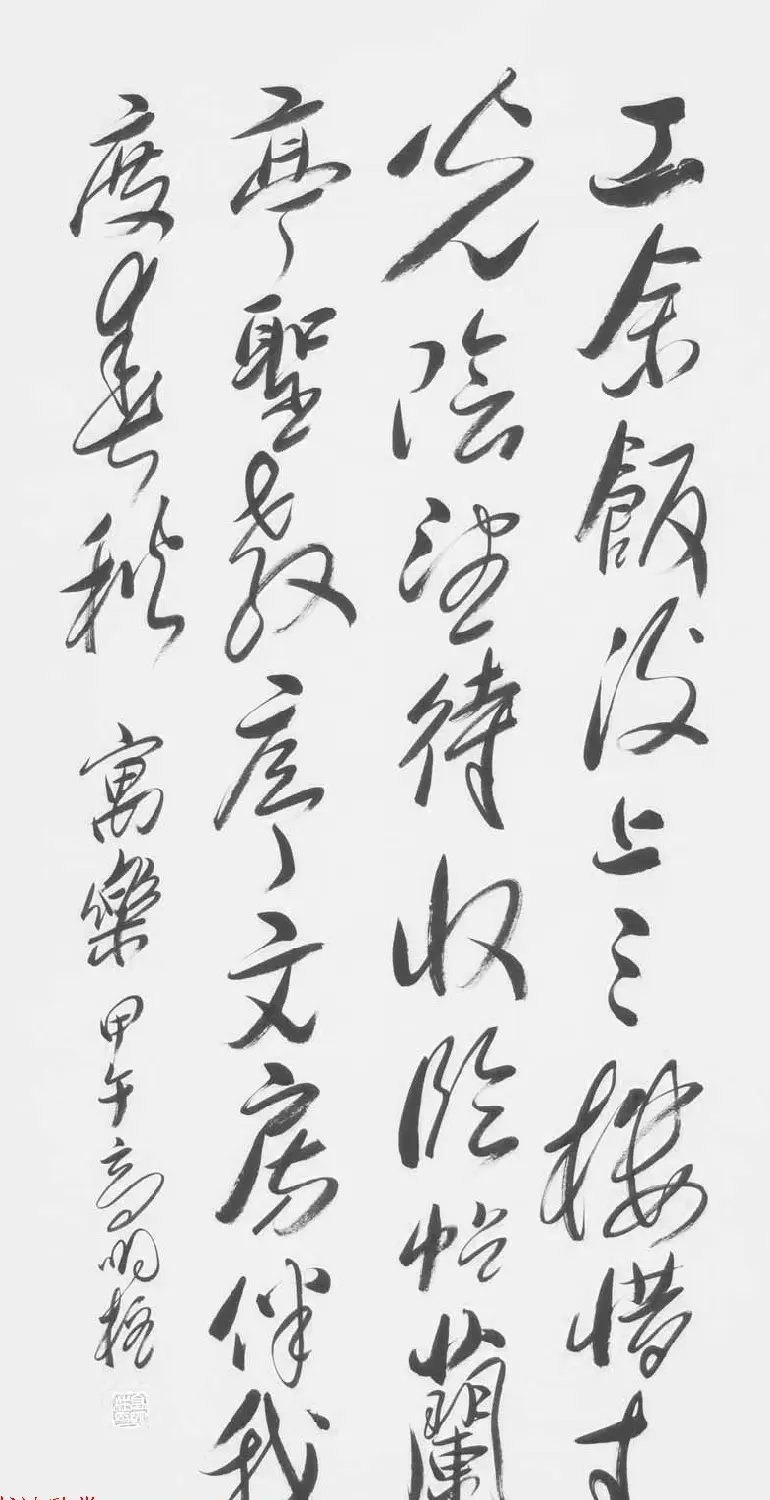 工余飯後上三樓惜寸
光陰坐待收臨帖蘭
亭聖教序文房伴我
度春秋
寓樂
甲午高明柱